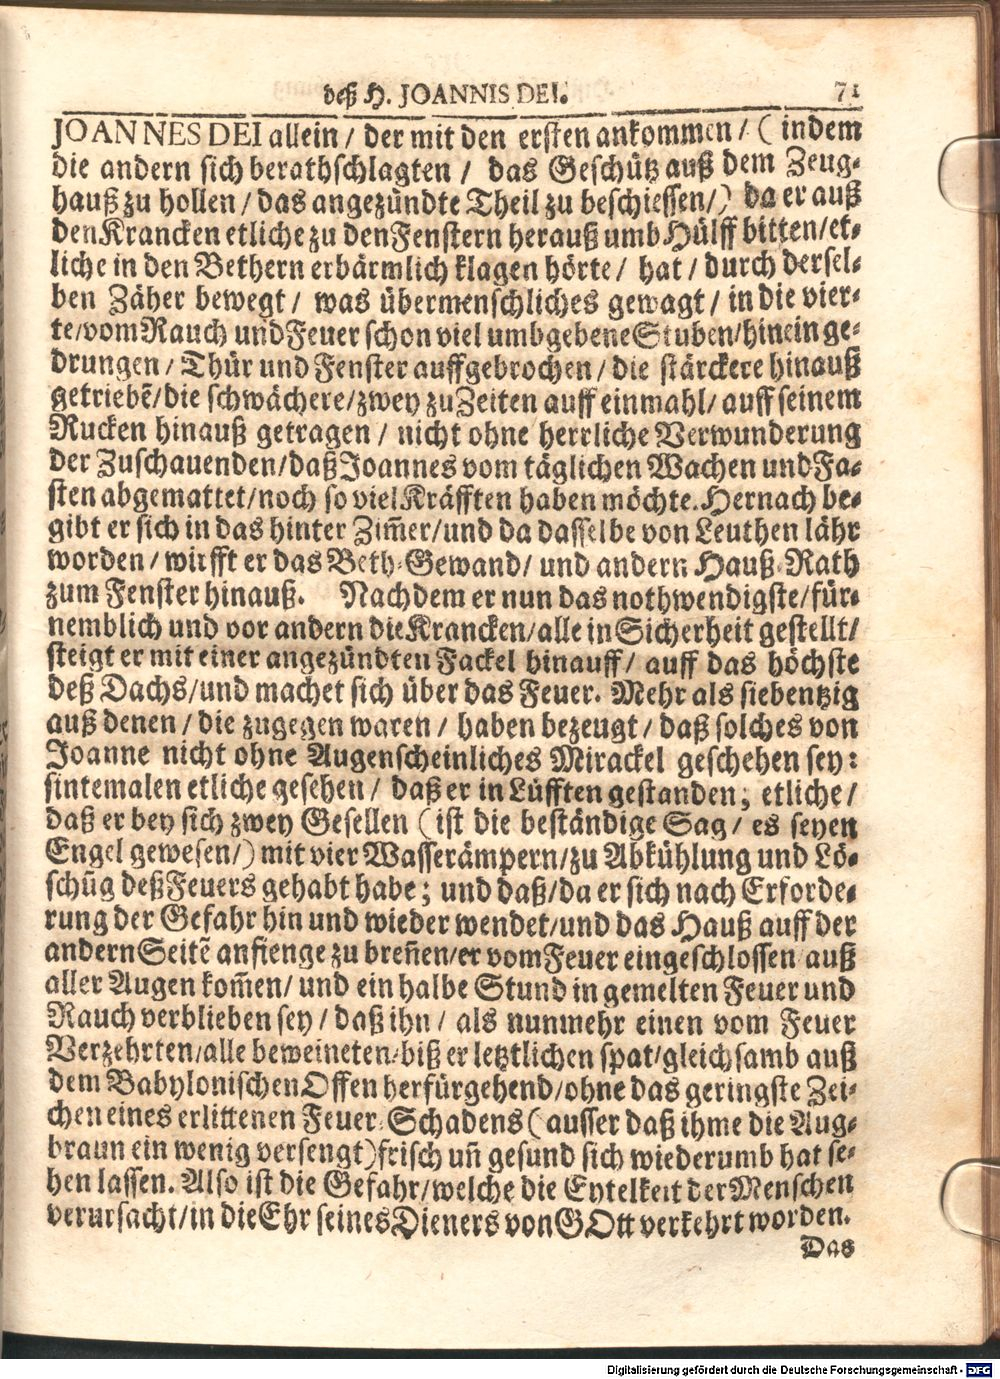 deß H. JOANNIS DEI. 71
JOANNES DEI allein / der mit den ersten ankommen / ( indem
die andern sich berathschlagten / das Geschütz auß dem Zeug-
hauß zu hollen / das angezündte Theil zu beschiessen /) da er auß
den Krancken etliche zu den Fenstern herauß umb Hülff bitten / et-
liche in den Bethern erbärmlich klagen hörte / hat / durch dersel-
ben Zäher bewegt / was übermenschliches gewagt / in die vier-
te / vom Rauch und Feuer schon viel umbgebene Stuben / hinein ge-
drungen / Thür und Fenster auffgebrochen / die stärckere hinauß
getriebẽ / die schwächere / zwey zu Zeiten auff einmahl / auff seinem
Rucken hinauß getragen / nicht ohne herrliche Verwunderung
der Zuschauenden / daß Joannes vom täglichen Wachen und Fa-
sten abgemattet / noch so viel Kräfften haben möchte. Hernach be-
gibt er sich in das hinter Zim̃er / und da dasselbe von Leuthen lähr
worden / wirfft er das Beth-Gewand / und andern Hauß-Rath
zum Fenster hinauß. Nachdem er nun das nothwendigste / für-
nemblich und vor andern die Krancken / alle in Sicherheit gestellt /
steigt er mit einer angezündten Fackel hinauff / auff das höchste
deß Dachs / und machet sich über das Feuer. Mehr als siebentzig
auß denen / die zugegen waren / haben bezeugt / daß solches von
Joanne nicht ohne Augenscheinliches Mirackel geschehen sey:
sintemalen etliche gesehen / daß er in Lüfften gestanden; etliche /
daß er bey sich zwey Gesellen ( ist die beständige Sag / es seyen
Engel gewesen /) mit vier Wasserämpern / zu Abkühlung und Lö-
schũg deß Feuers gehabt habe; und daß / da er sich nach Erforde-
rung der Gefahr hin und wieder wendet / und das Hauß auff der
andern Seitẽ anfienge zu breñen / er vom Feuer eingeschlossen auß
aller Augen kom̃en / und ein halbe Stund in gemelten Feuer und
Rauch verblieben sey / daß ihn / als nunmehr einen vom Feuer
Verzehrten / alle beweineten / biß er letztlichen spat / gleichsamb auß
dem Babylonischen Offen herfürgehend / ohne das geringste Zei-
chen eines erlittenen Feuer-Schadens ( ausser daß ihme die Aug-
braun ein wenig versengt ) frisch uñ gesund sich wiederumb hat se-
hen lassen. Also ist die Gefahr / welche die Eytelkeit der Menschen
verursacht / in die Ehr seines Dieners von GOtt verkehrt worden.
Das
Digitalisierung gefördert durch die Deutsche Forschungsgemeinschaft - DFG